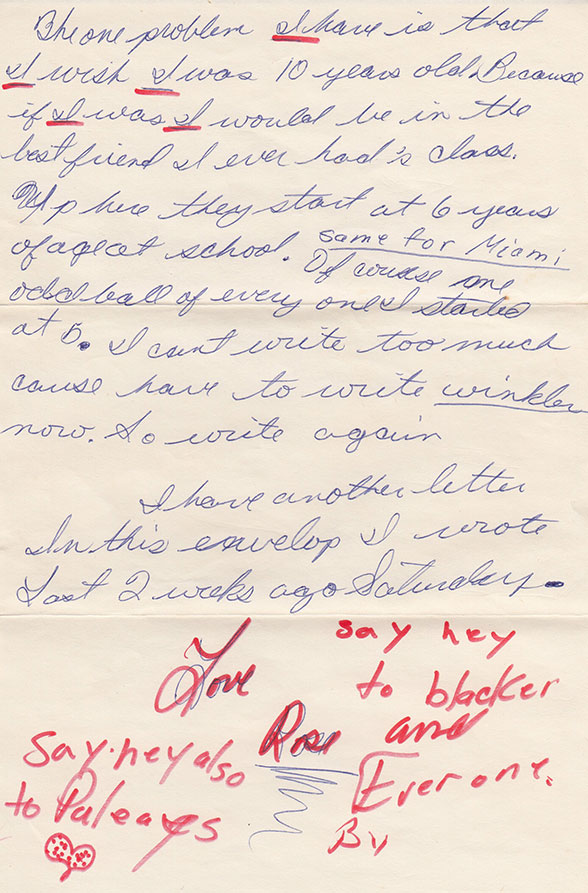 The one problem I have is that
I wish I was 10 years old. Because
if I was I would be in the
best friend I ever had's class.
Up here they start at 6 years
of age at school. same for Miami
Of course me
odd ball of every one I started
at 5. I cant write too much
cause have to write winkler
now. So write again
I have another letter
In this envelop I wrote
Last 2 weeks ago Saturday.
Love
Rose
say hey
to blacker
and
Everone.
By
Say hey also
to Paleays